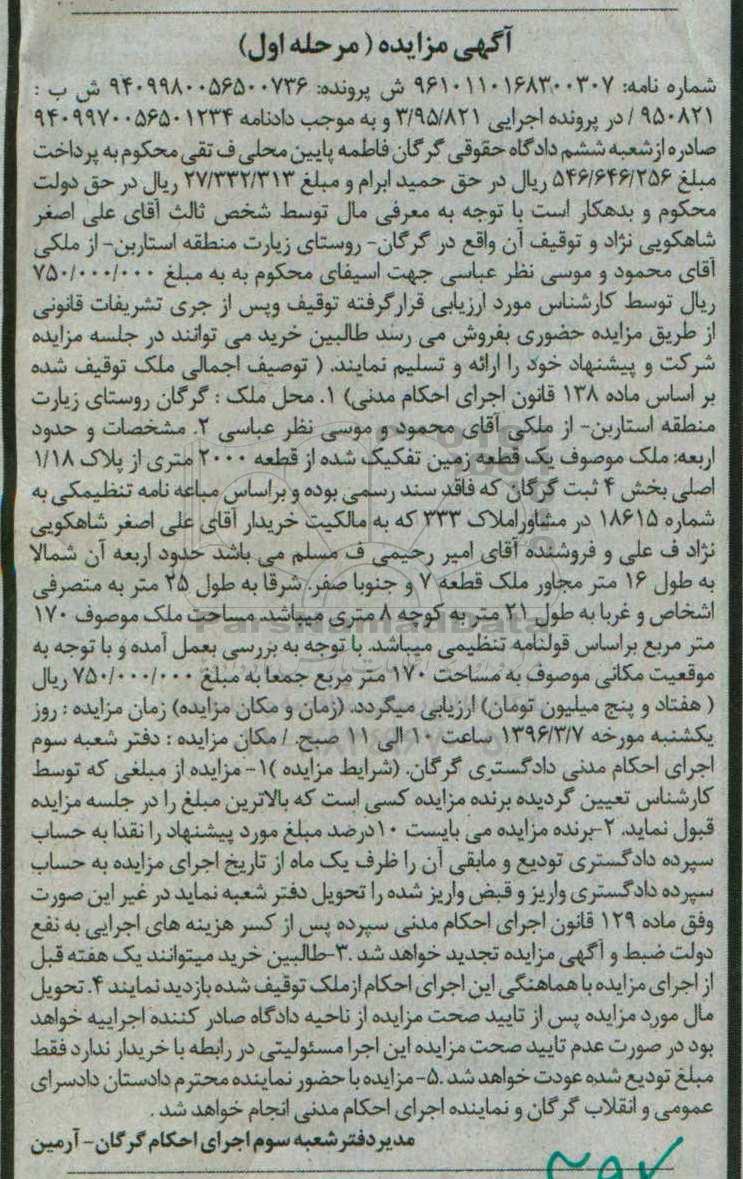 آگهی مزایده ( مرحله اول)
شماره نامه: ۹۶۱۰۱۱۰۱۶۸۳۰۰۳۰۷ ش پرونده: ۹۴۰۹۹۸۰۰۵۶۵۰۰۷۳۶ ش ب :
۹۵۰۸۲۱ / در پرونده اجرایی ۳/۹۵/۸۲۱ و به موجب دادنامه ۹۴۰۹۹۷۰۰۵۶۵۰۱۲۳۴
صادره از شعبه ششم دادگاه حقوقی گرگان فاطمه پایین محلی ف تقی محکوم به پرداخت
مبلغ ۵۴۶/۶۴۶/۲۵۶ ریال در حق حمید ابرام و مبلغ ۲۷/۳۳۲/۳۱۳ ریال در حق دولت
محکوم و بدهکار است با توجه به معرفی مال توسط شخص ثالث آقای علی اصغر
شاهکویی نژاد و توقیف آن واقع در گرگان- روستای زیارت منطقه استاربن- از ملکی
آقای محمود و موسی نظر عباسی جهت اسیفای محکوم به به مبلغ ۷۵۰/۰۰۰/۰۰۰
ریال توسط کارشناس مورد ارزیابی قرارگرفته توقیف وپس از جری تشریفات قانونی
از طریق مزایده حضوری بفروش می رسد طالبین خرید می توانند در جلسه مزایده
شرکت و پیشنهاد خود را ارائه و تسلیم نمایند. ( توصیف اجمالی ملک توقیف شده
بر اساس ماده ۱۳۸ قانون اجرای احکام مدنی) ۱. محل ملک : گرگان روستای زیارت
منطقه استاربن- از ملکی آقای محمود و موسی نظر عباسی ۲. مشخصات و حدود
اربعه: ملک موصوف یک قطعه زمین تفکیک شده از قطعه ۲۰۰۰ متری از پلاک ۱/۱۸
اصلی بخش ۴ ثبت گرگان که فاقد سند رسمی بوده و براساس مباعه نامه تنظیمکی به
شماره ۱۸۶۱۵ در مشاوراملاک ۳۳۳ که به مالکیت خریدار آقای علی اصغر شاهکویی
نژاد ف علی و فروشنده آقای امیر رحیمی ف مسلم می باشد حدود اربعه آن شمالا
به طول ۱۶ متر مجاور ملک قطعه ۷ و جنوبا صفر. شرقا به طول ۲۵ متر به متصرفی
اشخاص و غربا به طول ۲۱ متر به کوچه ۸ متری میباشد. مساحت ملک موصوف ۱۷۰
متر مربع براساس قولنامه تنظیمی میباشد. با توجه به بررسی بعمل آمده و با توجه به
موقعیت مکانی موصوف به مساحت ۱۷۰ متر مربع جمعا به مبلغ ۷۵۰/۰۰۰/۰۰۰ ریال
( هفتاد و پنج میلیون تومان) ارزیابی میگردد. (زمان و مکان مزایده) زمان مزایده : روز
یکشنبه مورخه ۱۳۹۶/۳/۷ ساعت ۱۰ الی ۱۱ صبح. / مکان مزایده : دفتر شعبه سوم
اجرای احکام مدنی دادگستری گرگان. (شرایط مزایده )۱- مزایده از مبلغی که توسط
کارشناس تعیین گردیده برنده مزایده کسی است که بالاترین مبلغ را در جلسه مزایده
قبول نماید. ۲-برنده مزایده می بایست ۱۰درصد مبلغ مورد پیشنهاد را نقدا به حساب
سپرده دادگستری تودیع و مابقی آن را ظرف یک ماه از تاریخ اجرای مزایده به حساب
سپرده دادگستری واریز و قبض واریز شده را تحویل دفتر شعبه نماید در غیر این صورت
وفق ماده ۱۲۹ قانون اجرای احکام مدنی سپرده پس از کسر هزینه های اجرایی به نفع
دولت ضبط و آگهی مزایده تجدید خواهد شد .۳-طالبین خرید میتوانند یک هفته قبل
از اجرای مزایده با هماهنگی این اجرای احکام ازملک توقیف شده بازدید نمایند ۴. تحویل
مال مورد مزایده پس از تایید صحت مزایده از ناحیه دادگاه صادر کننده اجراییه خواهد
بود در صورت عدم تایید صحت مزایده این اجرا مسئولیتی در رابطه با خریدار ندارد فقط
مبلغ تودیع شده عودت خواهد شد .۵- مزایده با حضور نماینده محترم دادستان دادسرای
عمومی و انقلاب گرگان و نماینده اجرای احکام مدنی انجام خواهد شد .
مدیر دفتر شعبه سوم اجرای احکام گرگان- آرمین